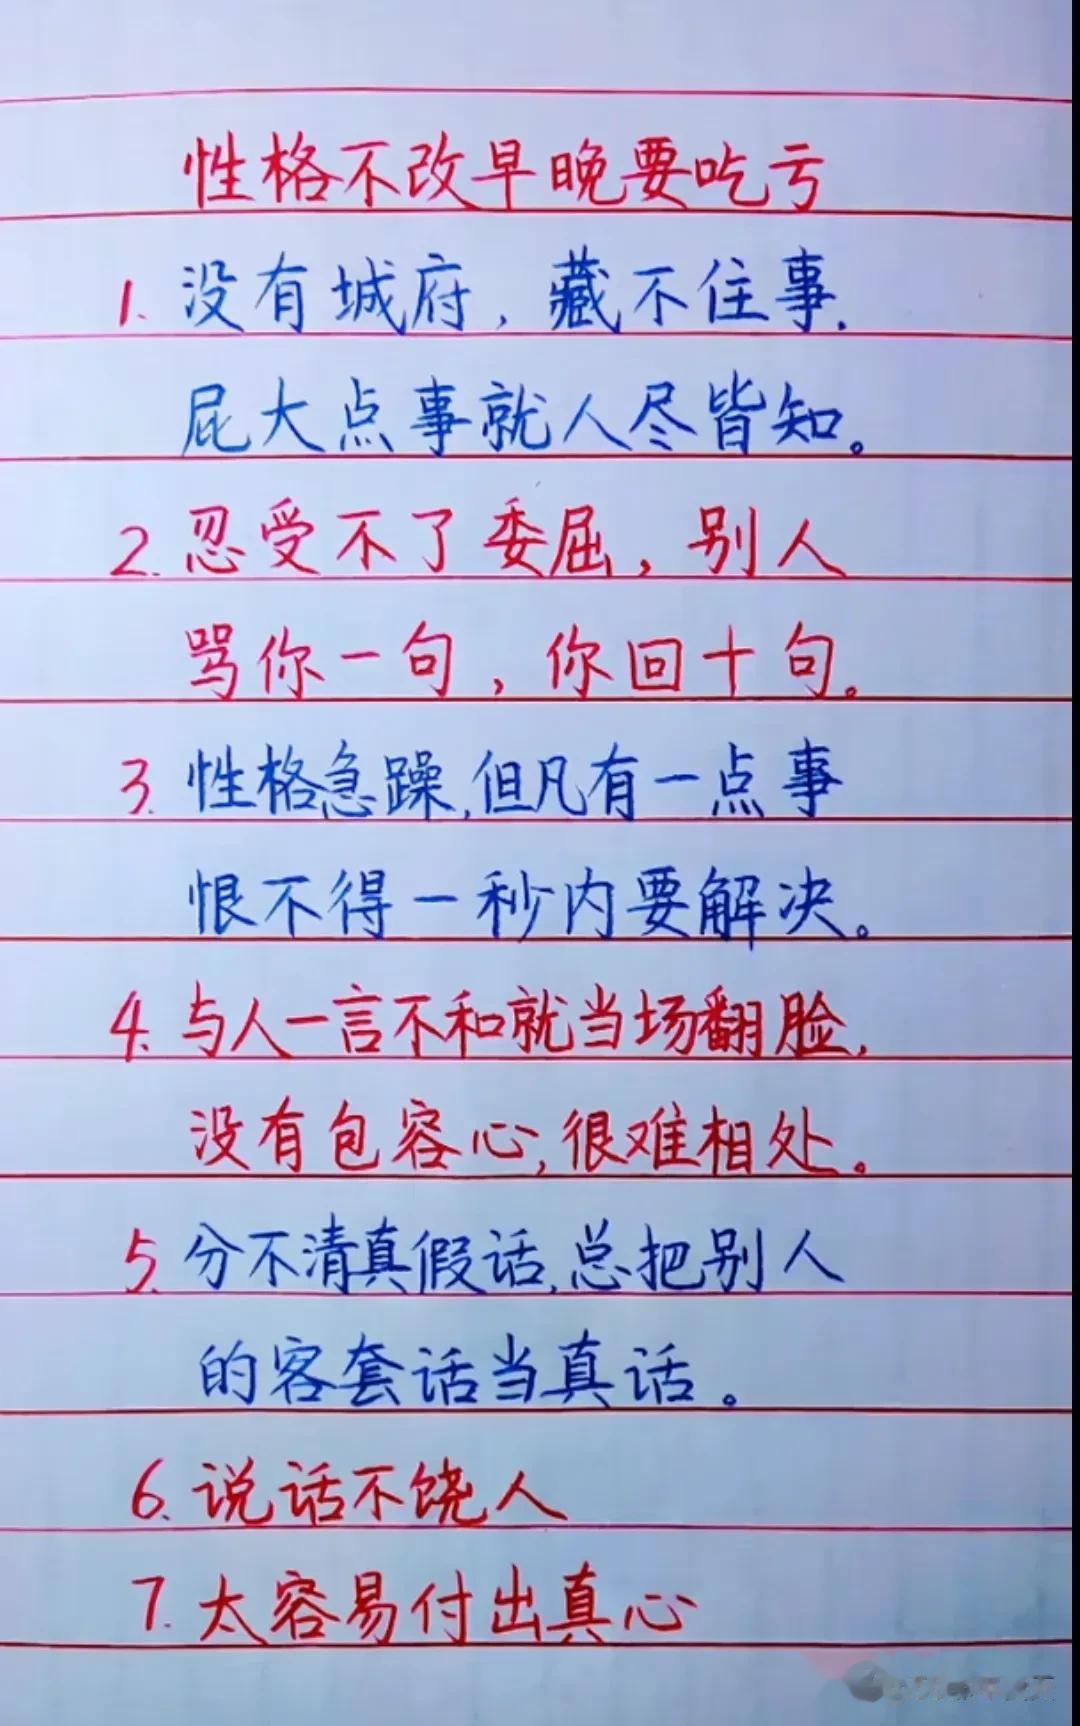 性格不改早晚要吃亏
1. 没有城府，藏不住事.
屁大点事就人尽皆知。
2. 忍受不了委屈，别人
骂你一句，你回十句。
3. 性格急躁,但凡有一点事
恨不得一秒内要解决。
4. 与人一言不和就当场翻脸,
没有包容心,很难相处。
5. 分不清真假话,总把别人
的客套话当真话。
6. 说话不饶人
7. 太容易付出真心